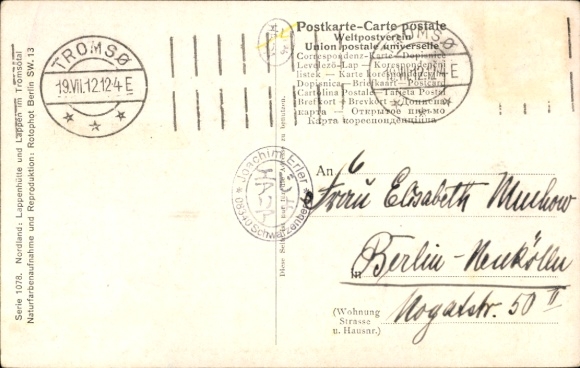 Postkarte-Carte postale
Weltpostverein
Union postale universelle
Correspondenz-Karte - Dopisnice
Levelező-Lap - Korespondenční
lístek - Karte korespondencyjna
Dopisnica - Briefkaart - Postcard
Cartolina Postale - Tarjeta Postal
Brefkort - Brevkort
карта — Открытое письмо
Карта кореспонденціина
TROMSØ
19.VII.12.12-4 E
TROMSØ
E
Joachim Erler
08340 Schwarzenberg
An
Frau Elisabeth
in Berlin-Neukölln
Nogatstr. 50 II
(Wohnung
Strasse
u. Hausnr.)
Diese Seite ist nur für die zu benutzen.
Serie 1078. Nordland: Lappenhütte und Lappen im Tromsötal
Naturfarbenaufnahme und Reproduktion: Rotophot Berlin SW. 13